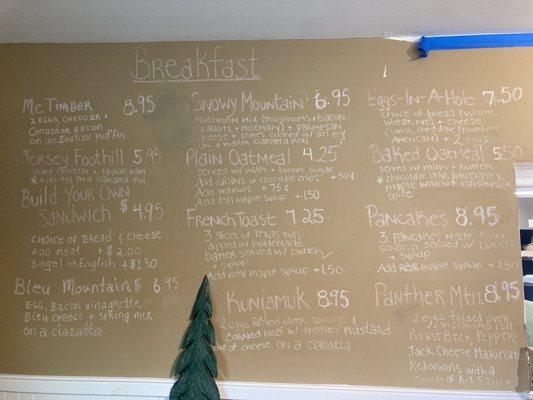 Breakfast
McTimber 8.95
2 eggs, cheddar +
Canadian bacon
on an English muffin
Jersey Foothill 5.95
sharp cheddar + taylor ham
Build Your Own
Sandwich $4.95
Choice of Bread & Cheese
Add meat + $2.00
Bagel or English + $1.50
Bleu Mountain $ 6.95
Egg, Bacon vinagrette,
Bleu cheese + spring mix
on a ciabatta
Snowy Mountain 6.95
Mushroom mix (mushrooms + bacon +
walnuts + rosemary) + parmesan
cheese + chives cooked w/ an egg
on a warm ciabatta roll
Plain Oatmeal 4.25
Served w/ milk + brown sugar
Add raisins or chocolate chips + 50¢
Add walnuts + 75¢
Add real maple syrup + 1.50
French Toast 7.25
3 slices of Texas toast
dipped in homemade
batter served w/ butter
+ syrup
Add real maple syrup + 1.50
Kuniamuk 8.95
2 eggs rolled over sausage &
corned beef w/ honey mustard
of cheese on a ciabatta
Eggs-In-A-Hole 7.50
choice of bread (white,
wheat, rye) + cheese
(swiss, cheddar, provolone
American) + 2 eggs
Baked Oatmeal 5.50
served w/ milk + butter
* chocolate chip, blueberry,
maple walnut + raisins +
spice
Pancakes 8.95
3 pancakes made from
scratch served w/ butter
+ syrup
Add real maple syrup + 1.50
Panther Mtn. 8.95
2 eggs folded over
Roast Beef, Pepper-
Jack Cheese Marinated
Red onions with a
touch of A-1 Sauce